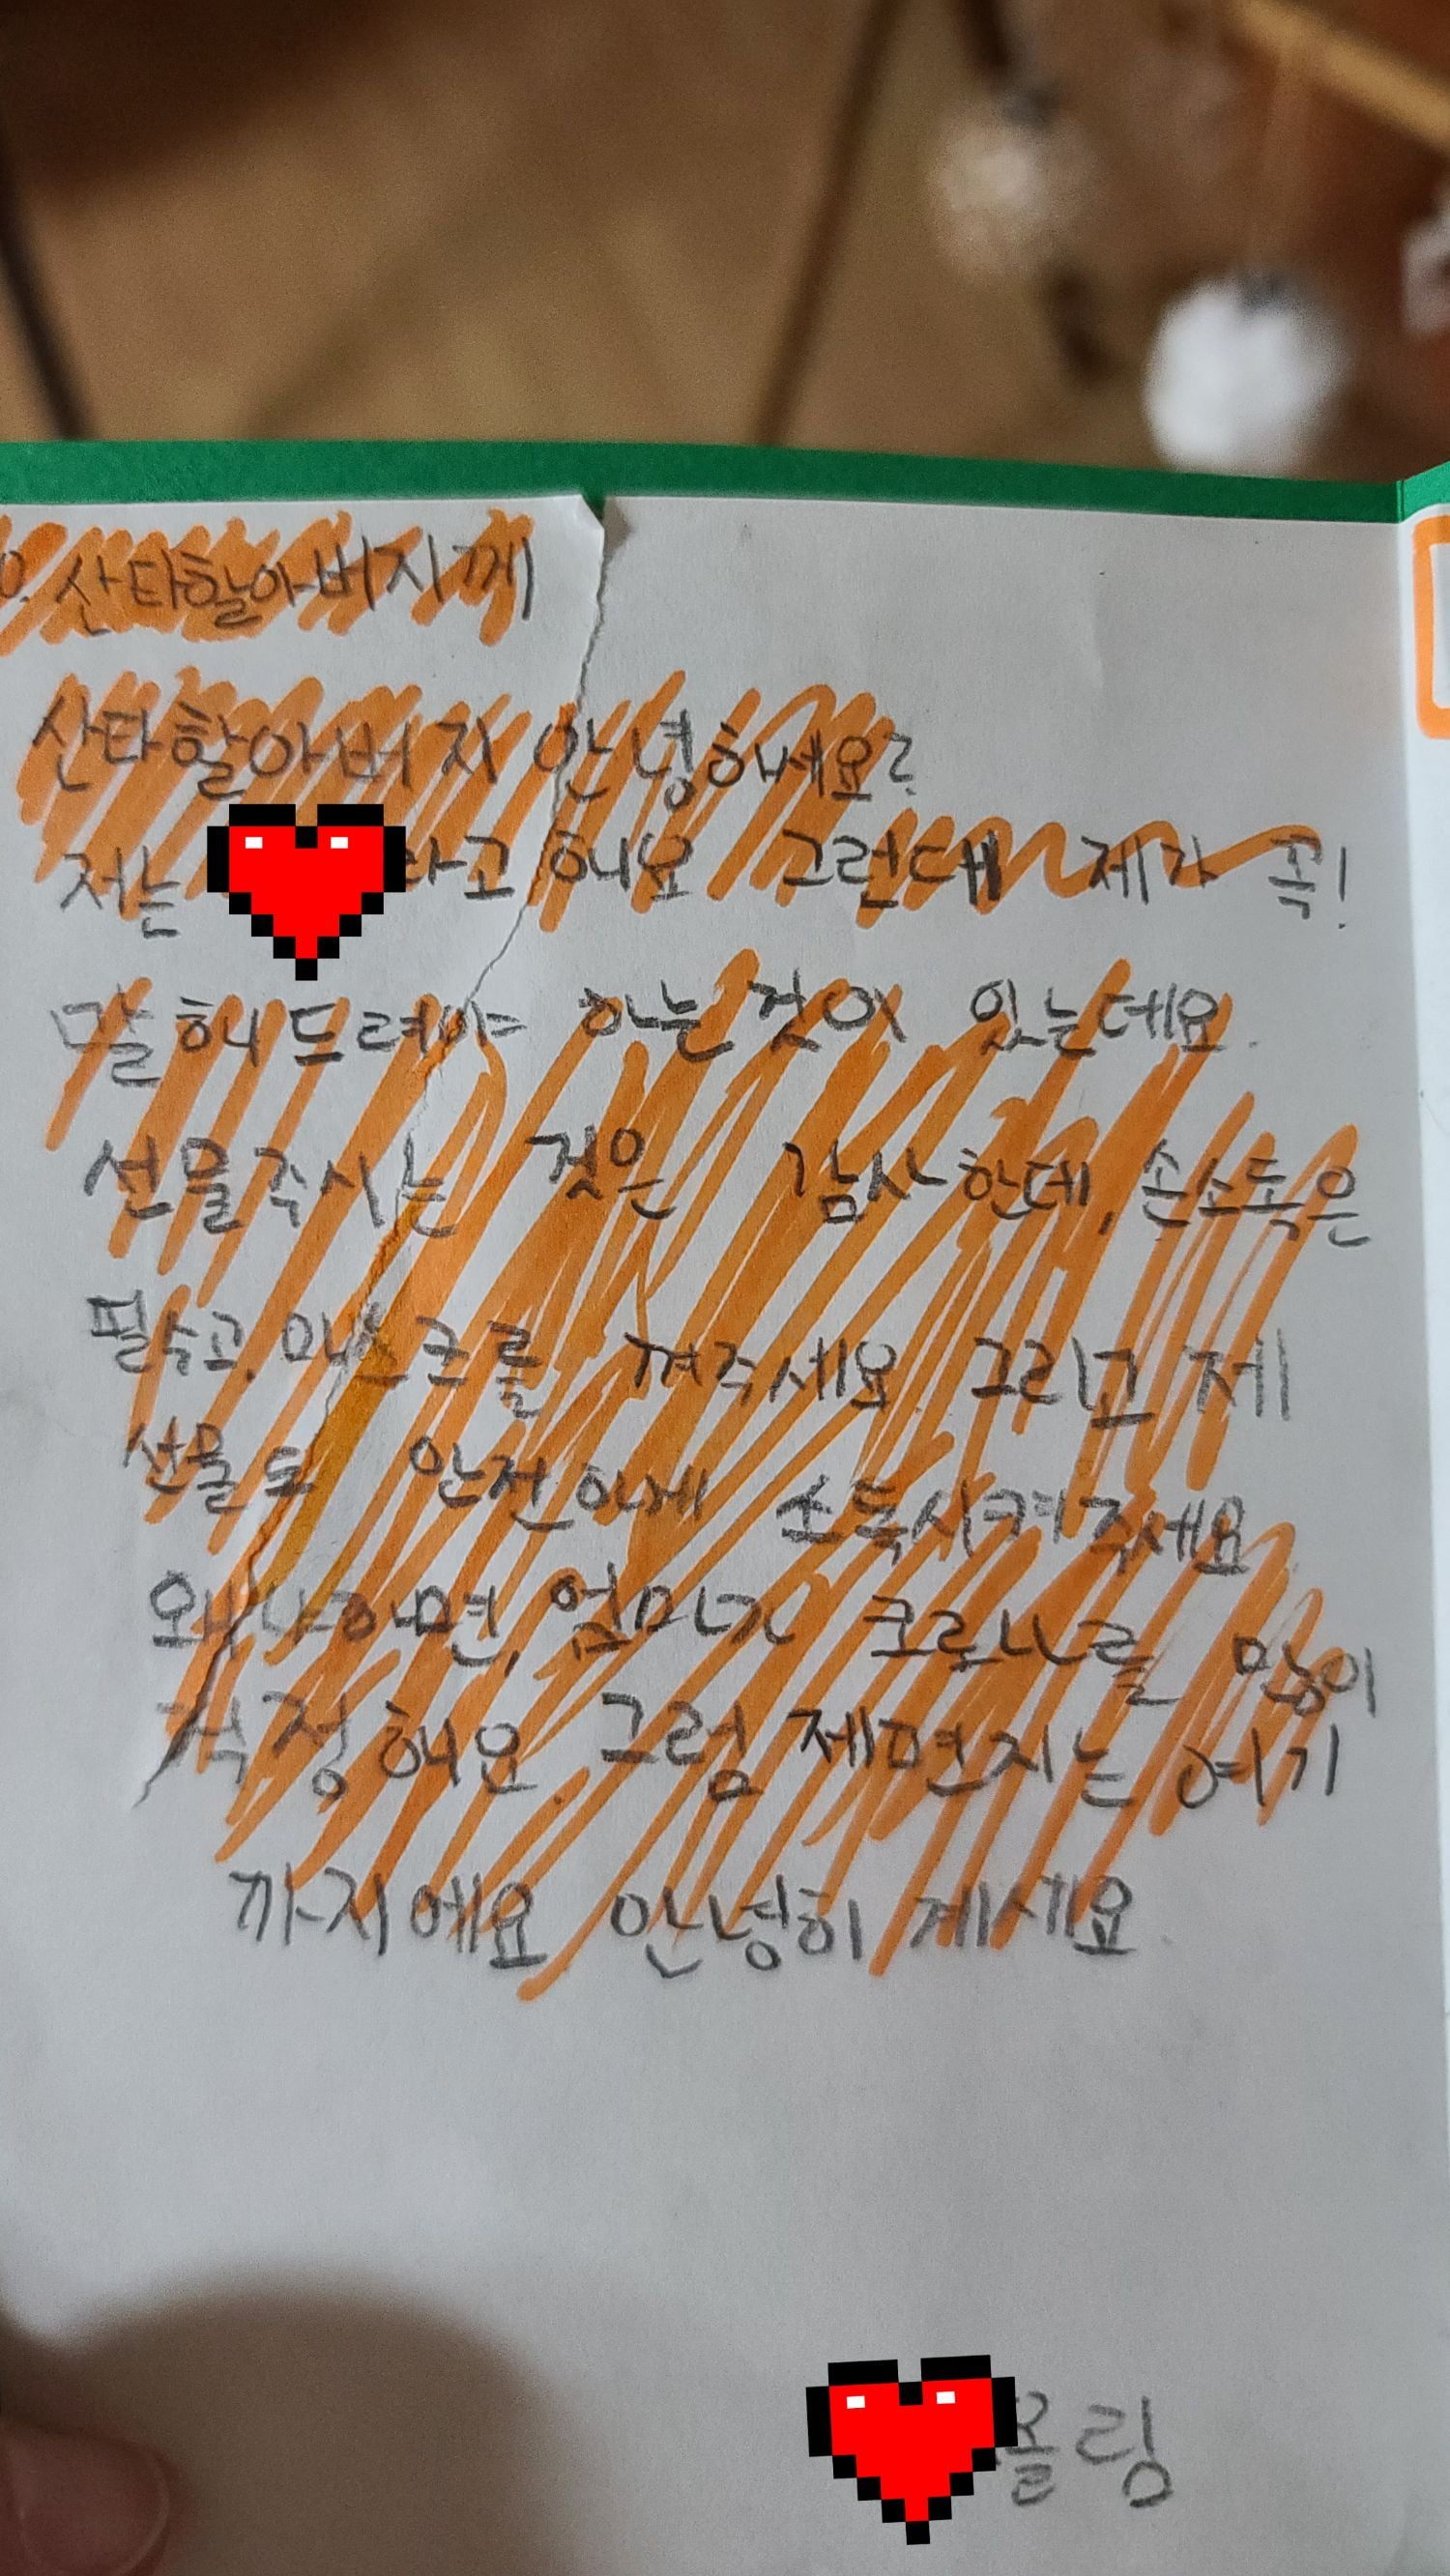 0. 산타할아버지께
산타할아버지 안녕하세요?
저는 라고 해요 그런데 제가 꼭!
말해드려야 하는 것이 있는데요.
선물주시는 것은 감사한데, 손소독은
필수고, 마스크를 껴주세요 그리고 제
선물도 안전하게 소독시켜주세요
왜냐하면, 엄마가 코로나를 많이
걱정해요. 그럼 제편지는 여기
까지에요 안녕히 계세요
올림